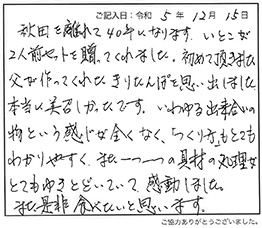 ご記入日：令和 5 年 12 月 15 日
秋田を離れて40年になります。いとこが
2人前セットを贈ってくれました。初めて頂きました。
父が作ってくれたきりたんぽを思い出しました。
本当に美味しかったです。いわゆる出来合いの
物という感じが全くなく、「つくり方」もとても
わかりやすく、また一つ一つの具材の処理が
とてもゆきとどいていて、感動しました。
また是非食べたいと思います。
ご協力ありがとうございました。